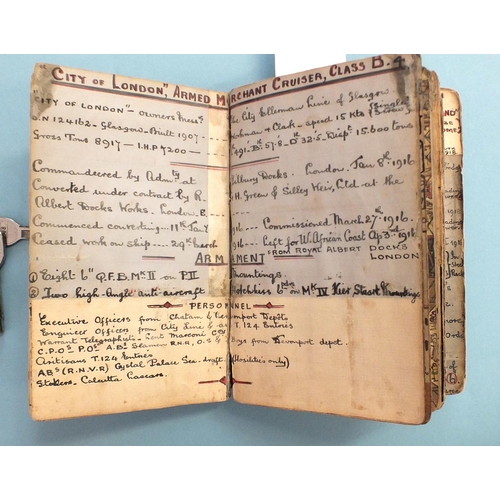 "CITY OF LONDON", ARMED MERCHANT CRUISER, CLASS B.4
"CITY OF LONDON" - owners Mess The City Ellerman Line of Glasgow
O.N 124.162 - Glasgow - Built 1907 - Workman & Clark - speed 15 Kts (Single Screw)
Gross Tons 8917 - I.H.P 7200 - 491' B: 57.8 D 32.5 - Displt 15.600 tons
Commandeered by Admty at Tilbury Docks. London. Jan 8th 1916
Converted under contract by R. H. Green & Silley Weir, Ltd at the
Albert Docks Works. London. E.
Commenced converting - 11th Jan Commissioned March 27th 1916.
Ceased work on ship - 29th March 1916 - Left for W. African Coast Ap 3rd 1916
FROM ROYAL ALBERT DOCKS LONDON
ARMAMENT
① Eight 6" Q.F.B. MK II on P.II Mountings
② Two high-Angle anti-aircraft Hotchkiss 6pdrs on MK IV Hier Stuart Mountings
PERSONNEL
Executive Officers from Chatam & Devonport Depôts
Engineer Officers from City Line T.124 Entries
Warrant Telegraphists - Marconi Coy
C.P.Os P.Os A.Bs Seamen R.N.R, O.S & Boys from Devonport depot.
Artisans T.124 Entries
ABs (R.N.V.R) Crystal Palace Sec. draft. (Hostilities only)
Stokers. Calcutta Lascars.